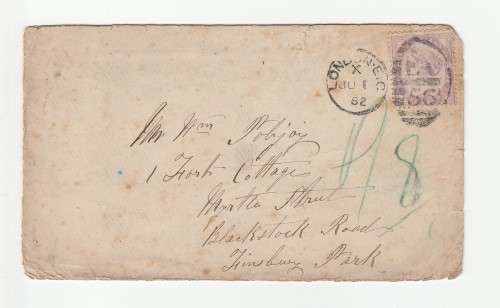 LONDON·E.C
X
JU 1
82
E.C
56
Mr Wm Pobjoy
1 Fort Cottages
Myrtle Street
Blackstock Road
Finsbury Park
8